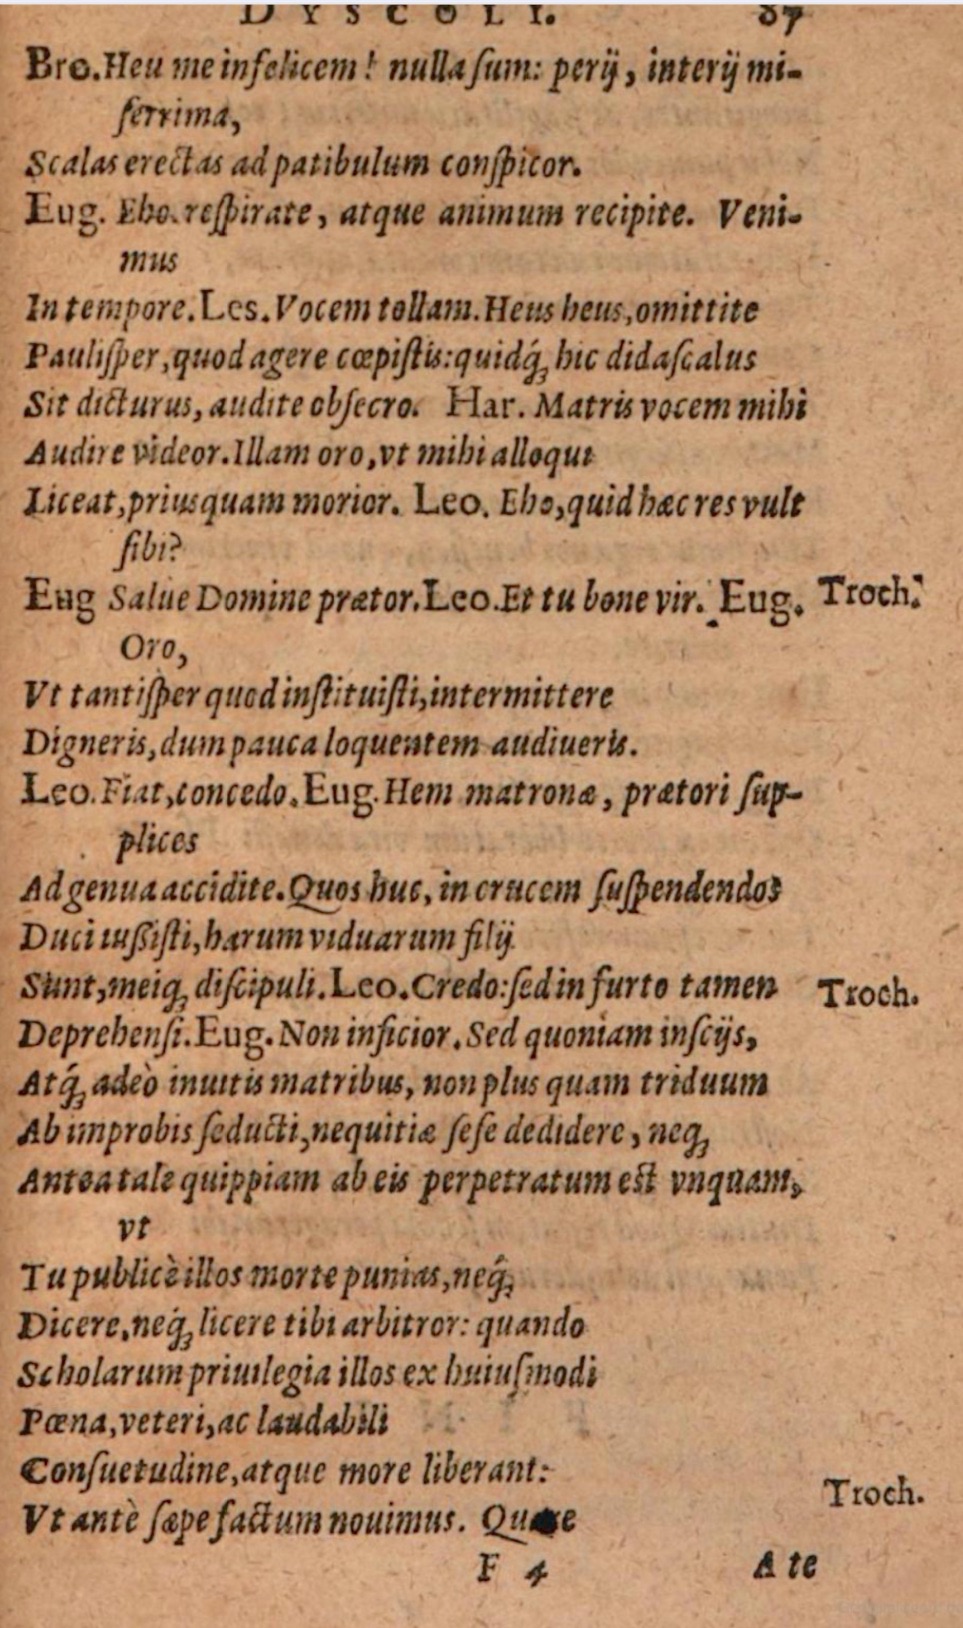 DYSCOLI. 87
Bro. Heu me infelicem! nulla ſum: perij, interij mi-
ſerrima,
Scalas erectas ad patibulum conſpicor.
Eug. Eho. reſpirate, atque animum recipite. Veni-
mus
In tempore. Les. Vocem tollam. Heus heus, omittite
Pauliſper, quod agere cœpiſtis: quidq́; hic didaſcalus
Sit dicturus, audite obſecro. Har. Matris vocem mihi
Audire videor. Illam oro, vt mihi alloqui
Liceat, priusquam morior. Leo. Eho, quid hæc res vult
ſibi?
Eug Salue Domine prætor. Leo. Et tu bone vir. Eug. Troch.
Oro,
Vt tantiſper quod inſtituiſti, intermittere
Digneris, dum pauca loquentem audiueris.
Leo. Fiat, concedo. Eug. Hem matronæ, prætori ſup-
plices
Ad genua accidite. Quos huc, in crucem ſuſpendendos
Duci iußiſti, harum viduarum filij
Sunt, meiq; diſcipuli. Leo. Credo: ſed in furto tamen Troch.
Deprehenſi. Eug. Non inficior. Sed quoniam inſcijs,
Atq́; adeò inuitis matribus, non plus quam triduum
Ab improbis ſeducti, nequitiæ ſeſe dedidere, neq;
Antea tale quippiam ab eis perpetratum est vnquam,
vt
Tu publicè illos morte punias, neq́;
Dicere, neq́; licere tibi arbitror: quando
Scholarum priuilegia illos ex huiuſmodi
Pœna, veteri, ac laudabili
Conſuetudine, atque more liberant:
Vt antè ſæpe factum nouimus. Quare Troch.
F 4 A te